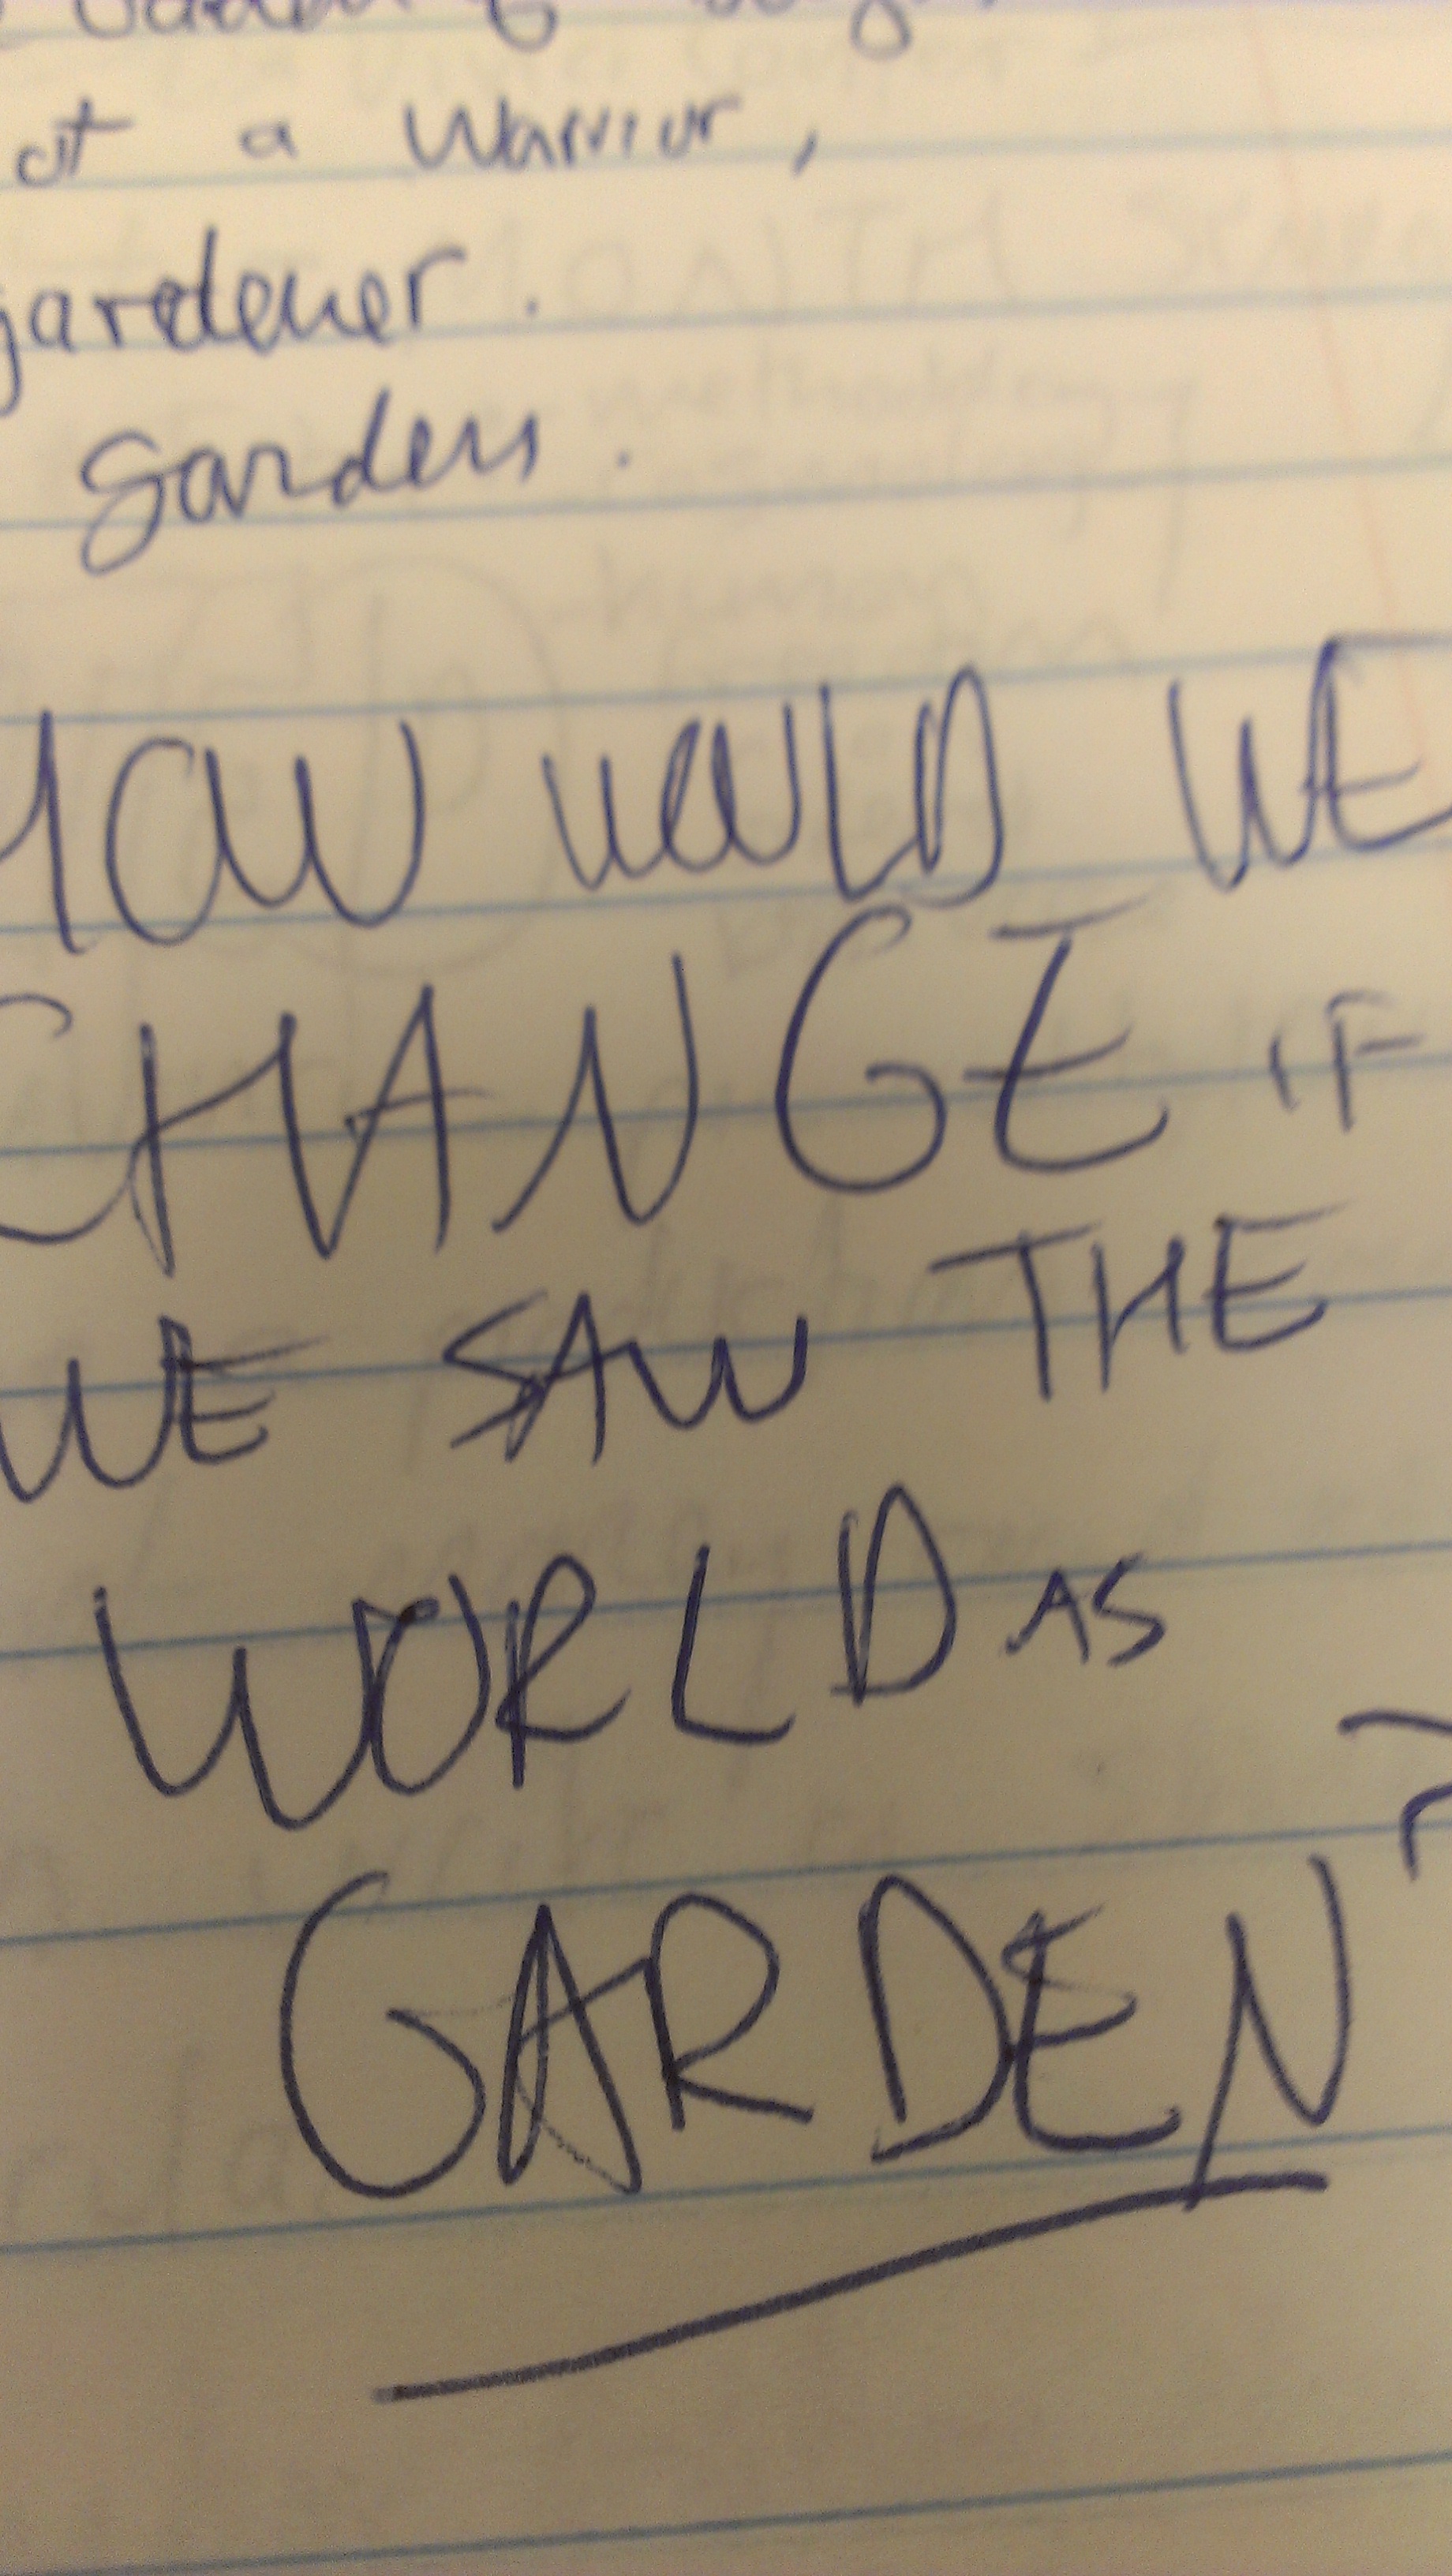 a warrior,
gardener.
garden.
HOW WOULD WE
CHANGE IF
WE SAW THE
WORLD AS
GARDEN